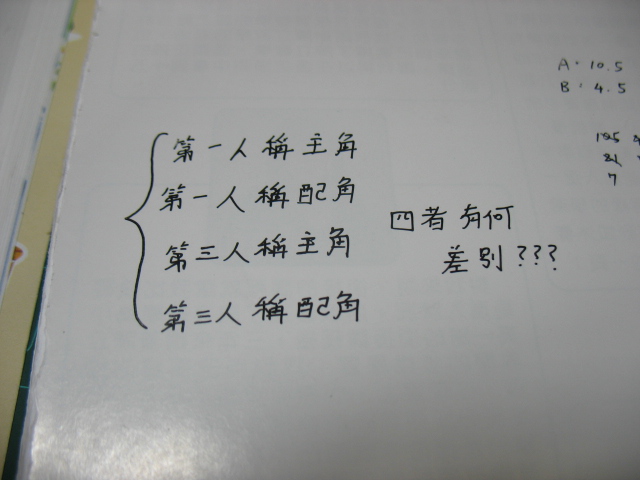 A: 10.5
B: 4.5
195
21
7
第一人稱主角
第一人稱配角
第三人稱主角
第三人稱配角
四者有何
差別???